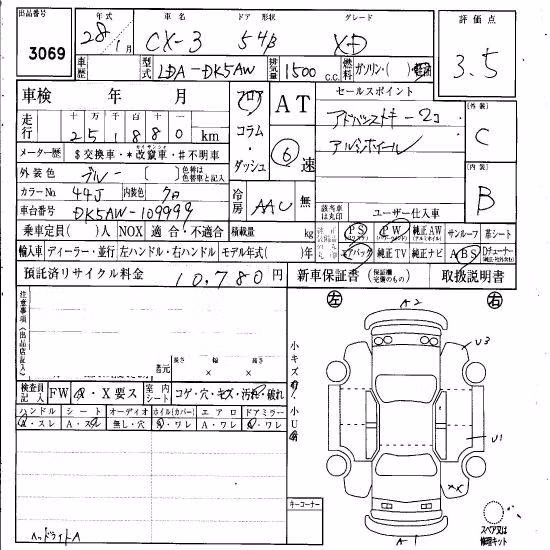 出品番号
3069
年式 車名 ドア 形状 グレード
28年 1月 CX-3 5 4β XD
車歴 型式 LDA-DK5AW 排気量 1500 c.c. 燃料 ガソリン・( )・軽油
評価点
3.5
車検 年 月
走行 十万 万 千 百 十 一
2 5 1 8 8 0 km
メーター歴 $交換車・*改竄車・#不明車
外装色 ブルー ・[ ]
カラーNo 44J 内装色 クロ
車台番号 DK5AW-109999
フロア コラム・ダッシュ
AT
6速
冷房 AAC 無
セールスポイント
アドバンストキー2コ
アルミホイール
外装 C
内装 B
該当車は丸印 ユーザー仕入車
乗車定員( )人 NOX 適合・不適合 積載量 kg
PS PW 純正AW サンルーフ 革シート
輸入車 ディーラー・並行 左ハンドル・右ハンドル モデル年式( )年
エアバック 純正TV 純正ナビ ABS Dチューナー
預託済リサイクル料金 10,780円
新車保証書 取扱説明書
注意事項(出品店記入)
諸元 長さ 幅 高さ
× ×
検査員記入 FW A・X要ス 室内シート コゲ・穴・キズ・汚れ・破れ
ハンドル シート オーディオ ホイル(カバー) エアロ ドアミラー
A・スレ A・スレ 無し・穴 A・ワレ A・ワレ A・ワレ
ヘッドライトA
小キズ
小U
キーコーナー
左 右
A2
U3
U1
XX
A1
スペア又は修理キット